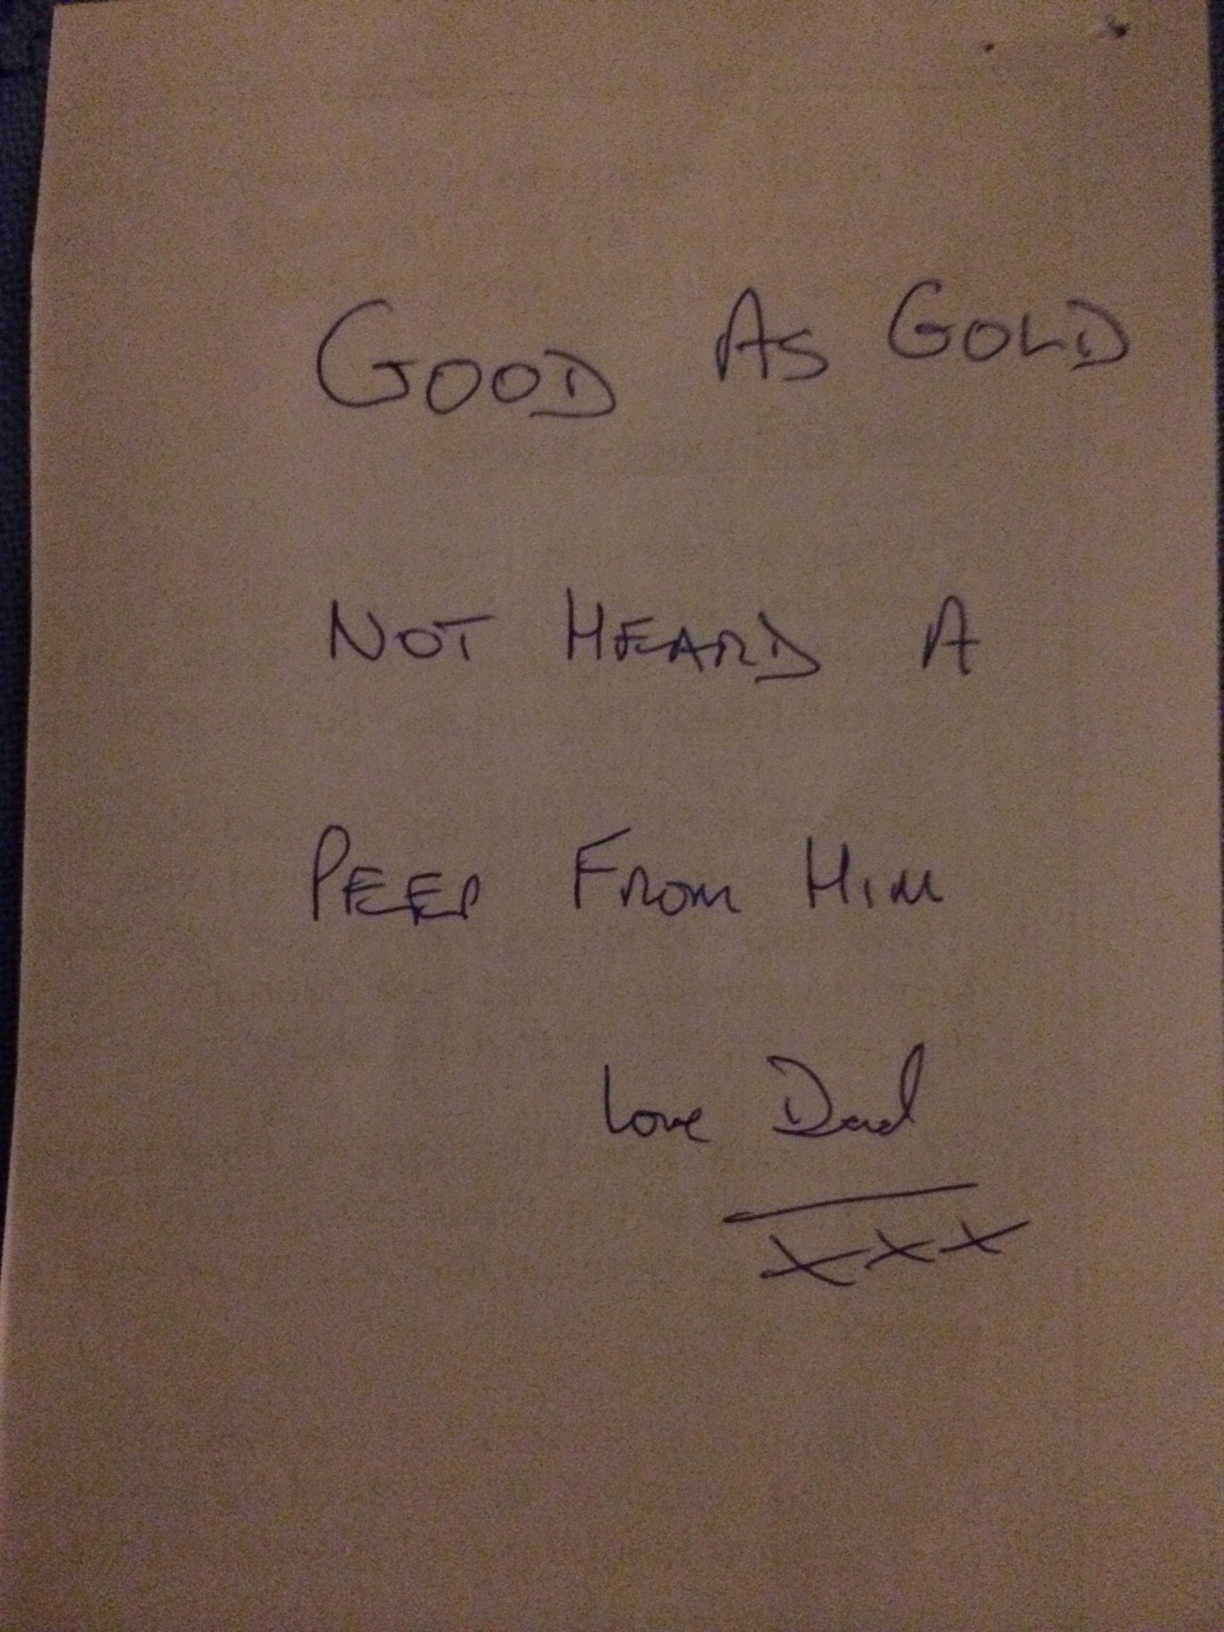 GOOD AS GOLD
NOT HEARD A
PEEP FROM HIM
Love Dad
xxx